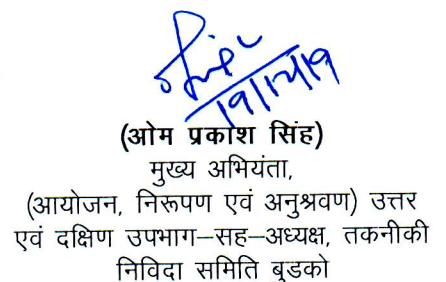 19/12/19
(ओम प्रकाश सिंह)
मुख्य अभियंता,
(आयोजन, निरूपण एवं अनुश्रवण) उत्तर
एवं दक्षिण उपभाग–सह–अध्यक्ष, तकनीकी
निविदा समिति बुडको